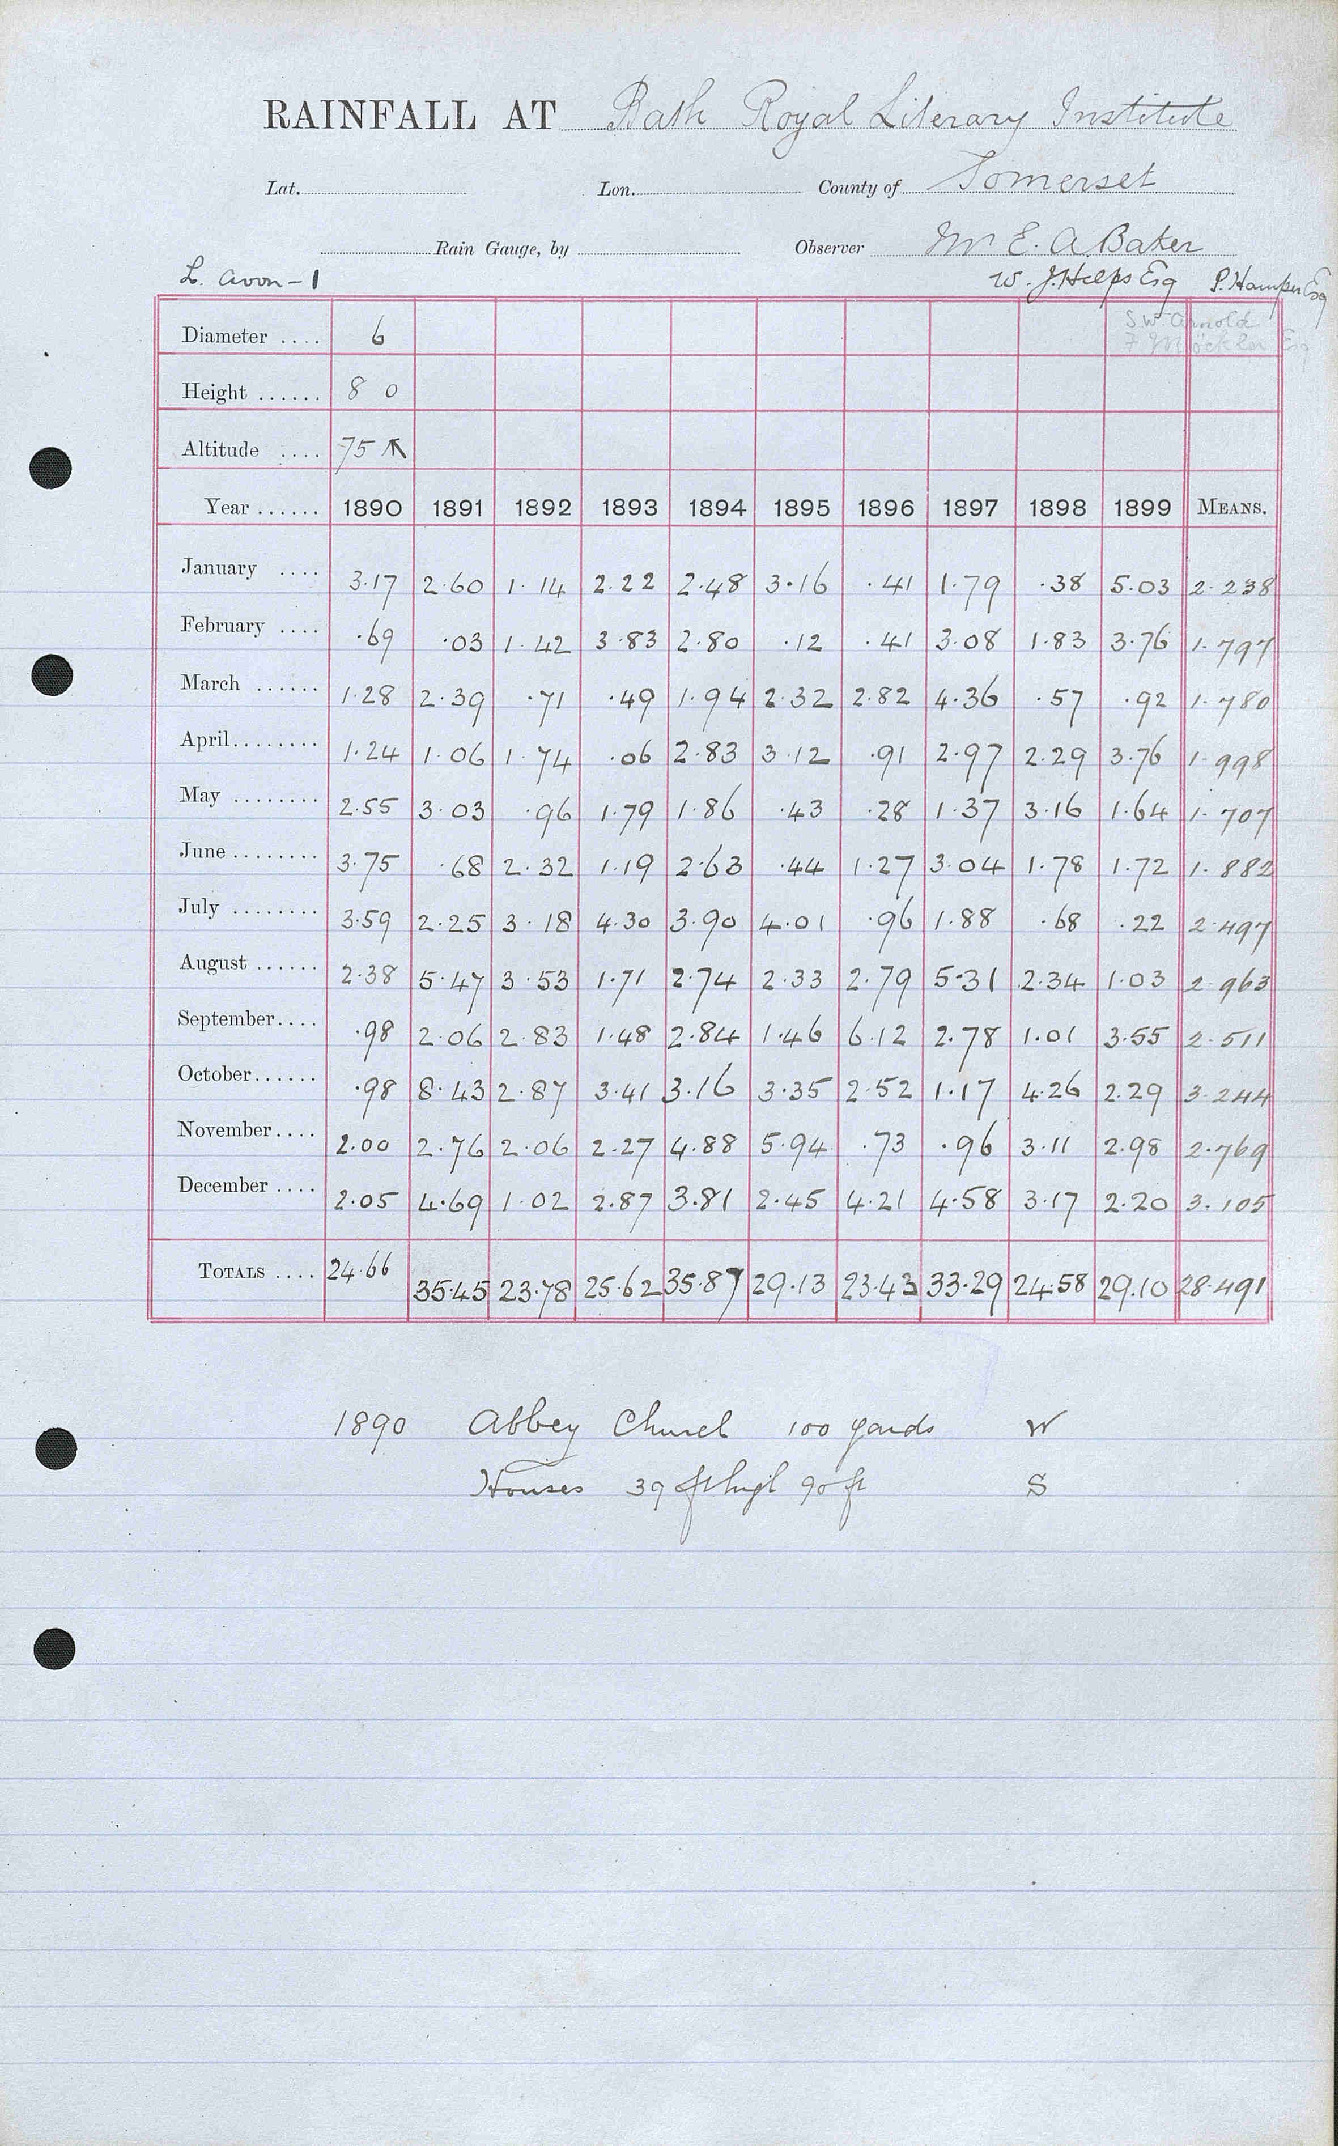 RAINFALL AT Bath Royal Literary Institute
Lat. Lon. County of Somerset
Rain Gauge, by Observer Mr E. A. Baker
L. Avon-1 W. J. Helps Esq P. Hamper Esq
S. W. Arnold
Diameter .... 6
Height ...... 8 0
Altitude .... 75
Year ...... 1890 1891 1892 1893 1894 1895 1896 1897 1898 1899 MEANS.
January .... 3.17 2.60 1.14 2.22 2.48 3.16 .41 1.79 .38 5.03 2.238
February .... .69 .03 1.42 3.83 2.80 .12 .41 3.08 1.83 3.76 1.797
March ...... 1.28 2.39 .71 .49 1.94 2.32 2.82 4.36 .57 .92 1.780
April........ 1.24 1.06 1.74 .06 2.83 3.12 .91 2.97 2.29 3.76 1.998
May ........ 2.55 3.03 .96 1.79 1.86 .43 .28 1.37 3.16 1.64 1.707
June ........ 3.75 .68 2.32 1.19 2.63 .44 1.27 3.04 1.78 1.72 1.882
July ........ 3.59 2.25 3.18 4.30 3.90 4.01 .96 1.88 .68 .22 2.497
August ...... 2.38 5.47 3.53 1.71 2.74 2.33 2.79 5.31 2.34 1.03 2.963
September.... .98 2.06 2.83 1.48 2.84 1.46 6.12 2.78 1.01 3.55 2.511
October...... .98 8.43 2.87 3.41 3.16 3.35 2.52 1.17 4.26 2.29 3.244
November.... 2.00 2.76 2.06 2.27 4.88 5.94 .73 .96 3.11 2.98 2.769
December .... 2.05 4.69 1.02 2.87 3.81 2.45 4.21 4.58 3.17 2.20 3.105
TOTALS .... 24.66 35.45 23.78 25.62 35.87 29.13 23.43 33.29 24.58 29.10 28.491
1890 Abbey Church 100 yards W
Houses 39 ft high 90 ft S